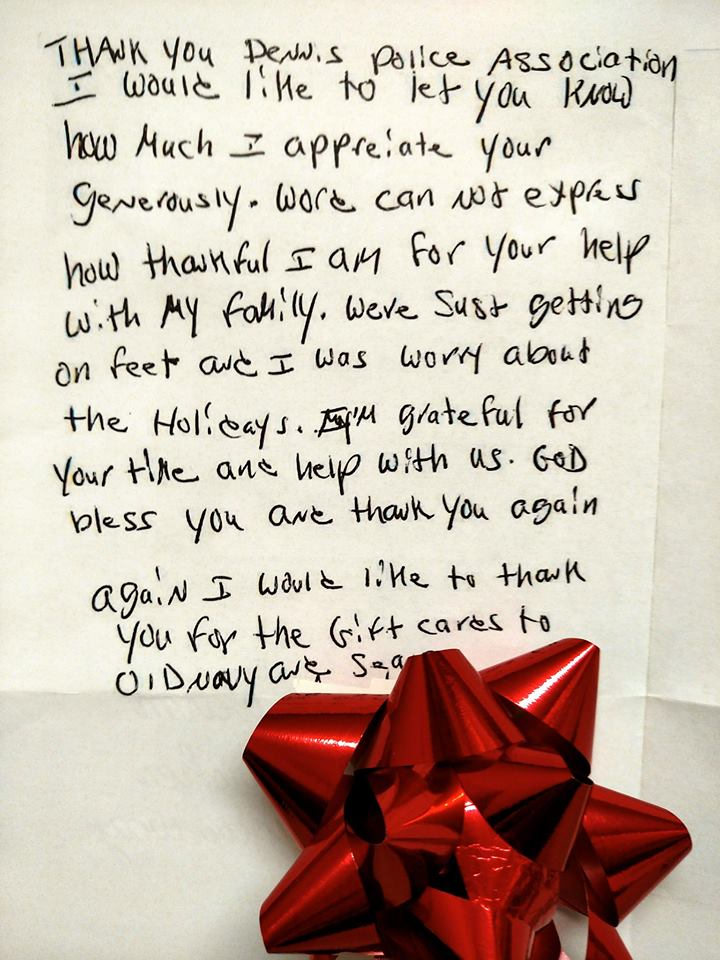 THANK YOU DENNIS POLICE ASSOCIATION
I would like to let you know
how Much I appreiate your
generously. Word can not express
how thankful I am for your help
with My family. Were Just getting
on feet and I was worry about
the Holidays. I'm grateful for
Your time and help with us. GOD
bless you and thank you again
again I would like to thank
you for the Gift cards to
OlDnavy and